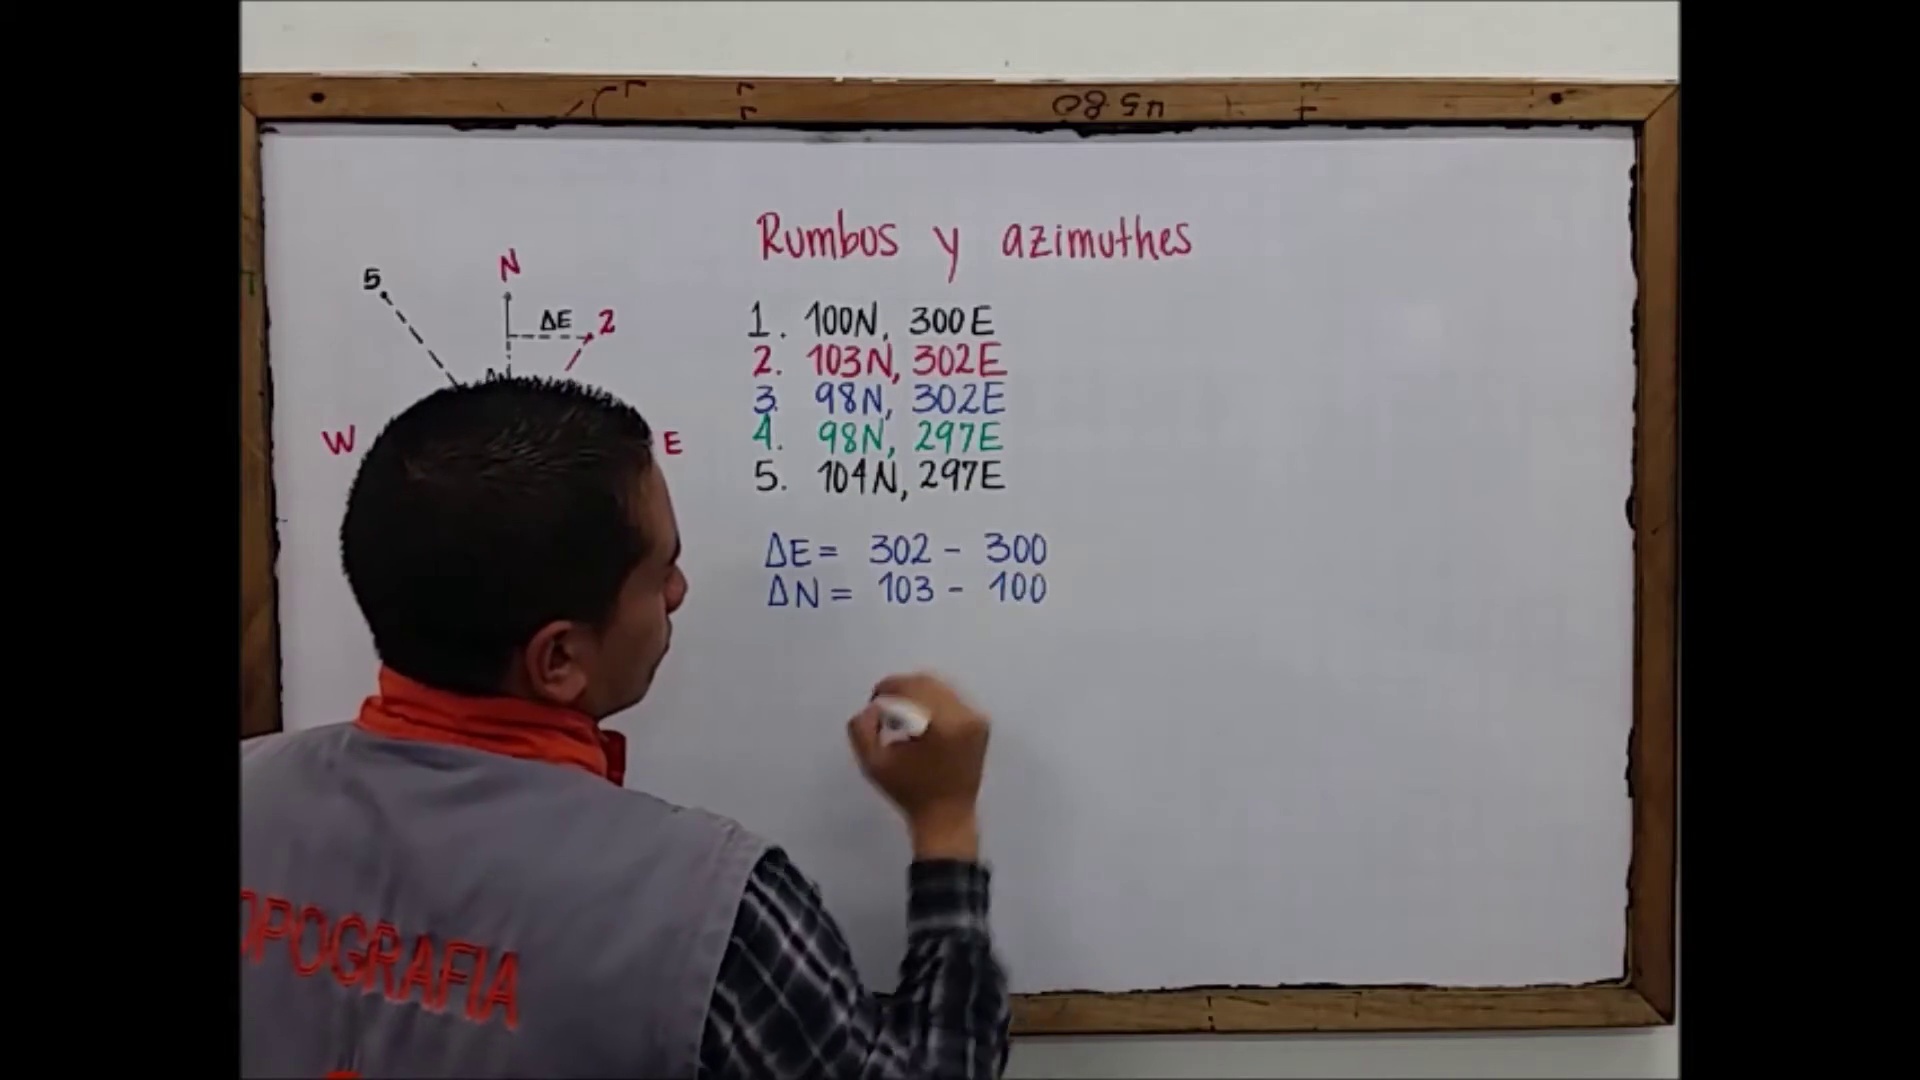 Rumbos y azimuthes
5
N
ΔE
2
W
E
1. 100N, 300E
2. 103N, 302E
3. 98N, 302E
4. 98N, 297E
5. 104N, 297E
ΔE = 302 - 300
ΔN = 103 - 100
OPOGRAFIA